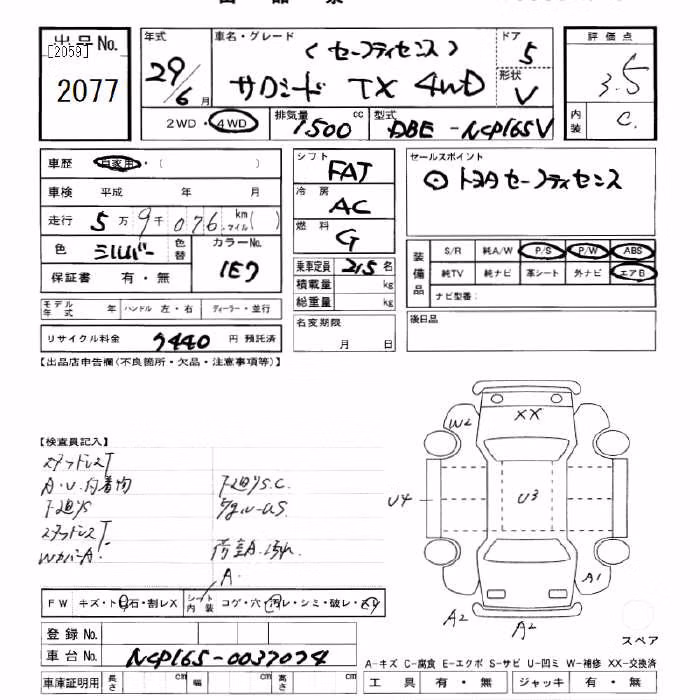 出品No.
[2059]
2077
年式
29/6月
車名・グレード
(セーフティセンス)
サクシード TX 4WD
ドア
5
形状
V
評価点
3.5
内装
C.
2WD・4WD
排気量
1500 cc
型式
DBE-NCP165V
車歴 自家用・( )
車検 平成 年 月
走行 5万9千076 km マイル( )
色 シルバー 色替
カラーNo.
1E7
保証書 有・無
モデル年式 年 ハンドル 左・右 ディーラー・並行
リサイクル料金 円 預託済
シフト
FAT
冷房
AC
燃料
G
乗車定員 2/5 名
積載量 kg
総重量 kg
名変期限
月 日
セールスポイント
⊙ トヨタセーフティセンス
装備品
S/R 純A/W P/S P/W ABS
純TV 純ナビ 革シート 外ナビ エアB
ナビ型番:
後日品
【出品店申告欄(不良箇所・欠品・注意事項等)】
【検査員記入】
A・U.付着物
下廻りS.C.
下廻りS
荷室A.汚れ
WカバーA.
A.
XX
W2
U4
U3
A1
A2
A2
スペア
FW キズ・トビ石・割レX
シート内装 コゲ・穴・汚レ・シミ・破レ・スレ
登録No.
車台No. NCP165-0037074
車庫証明用 長さ cm 幅 cm 高さ cm
A-キズ C-腐食 E-エクボ S-サビ U-凹ミ W-補修 XX-交換済
工具 有・無 ジャッキ 有・無